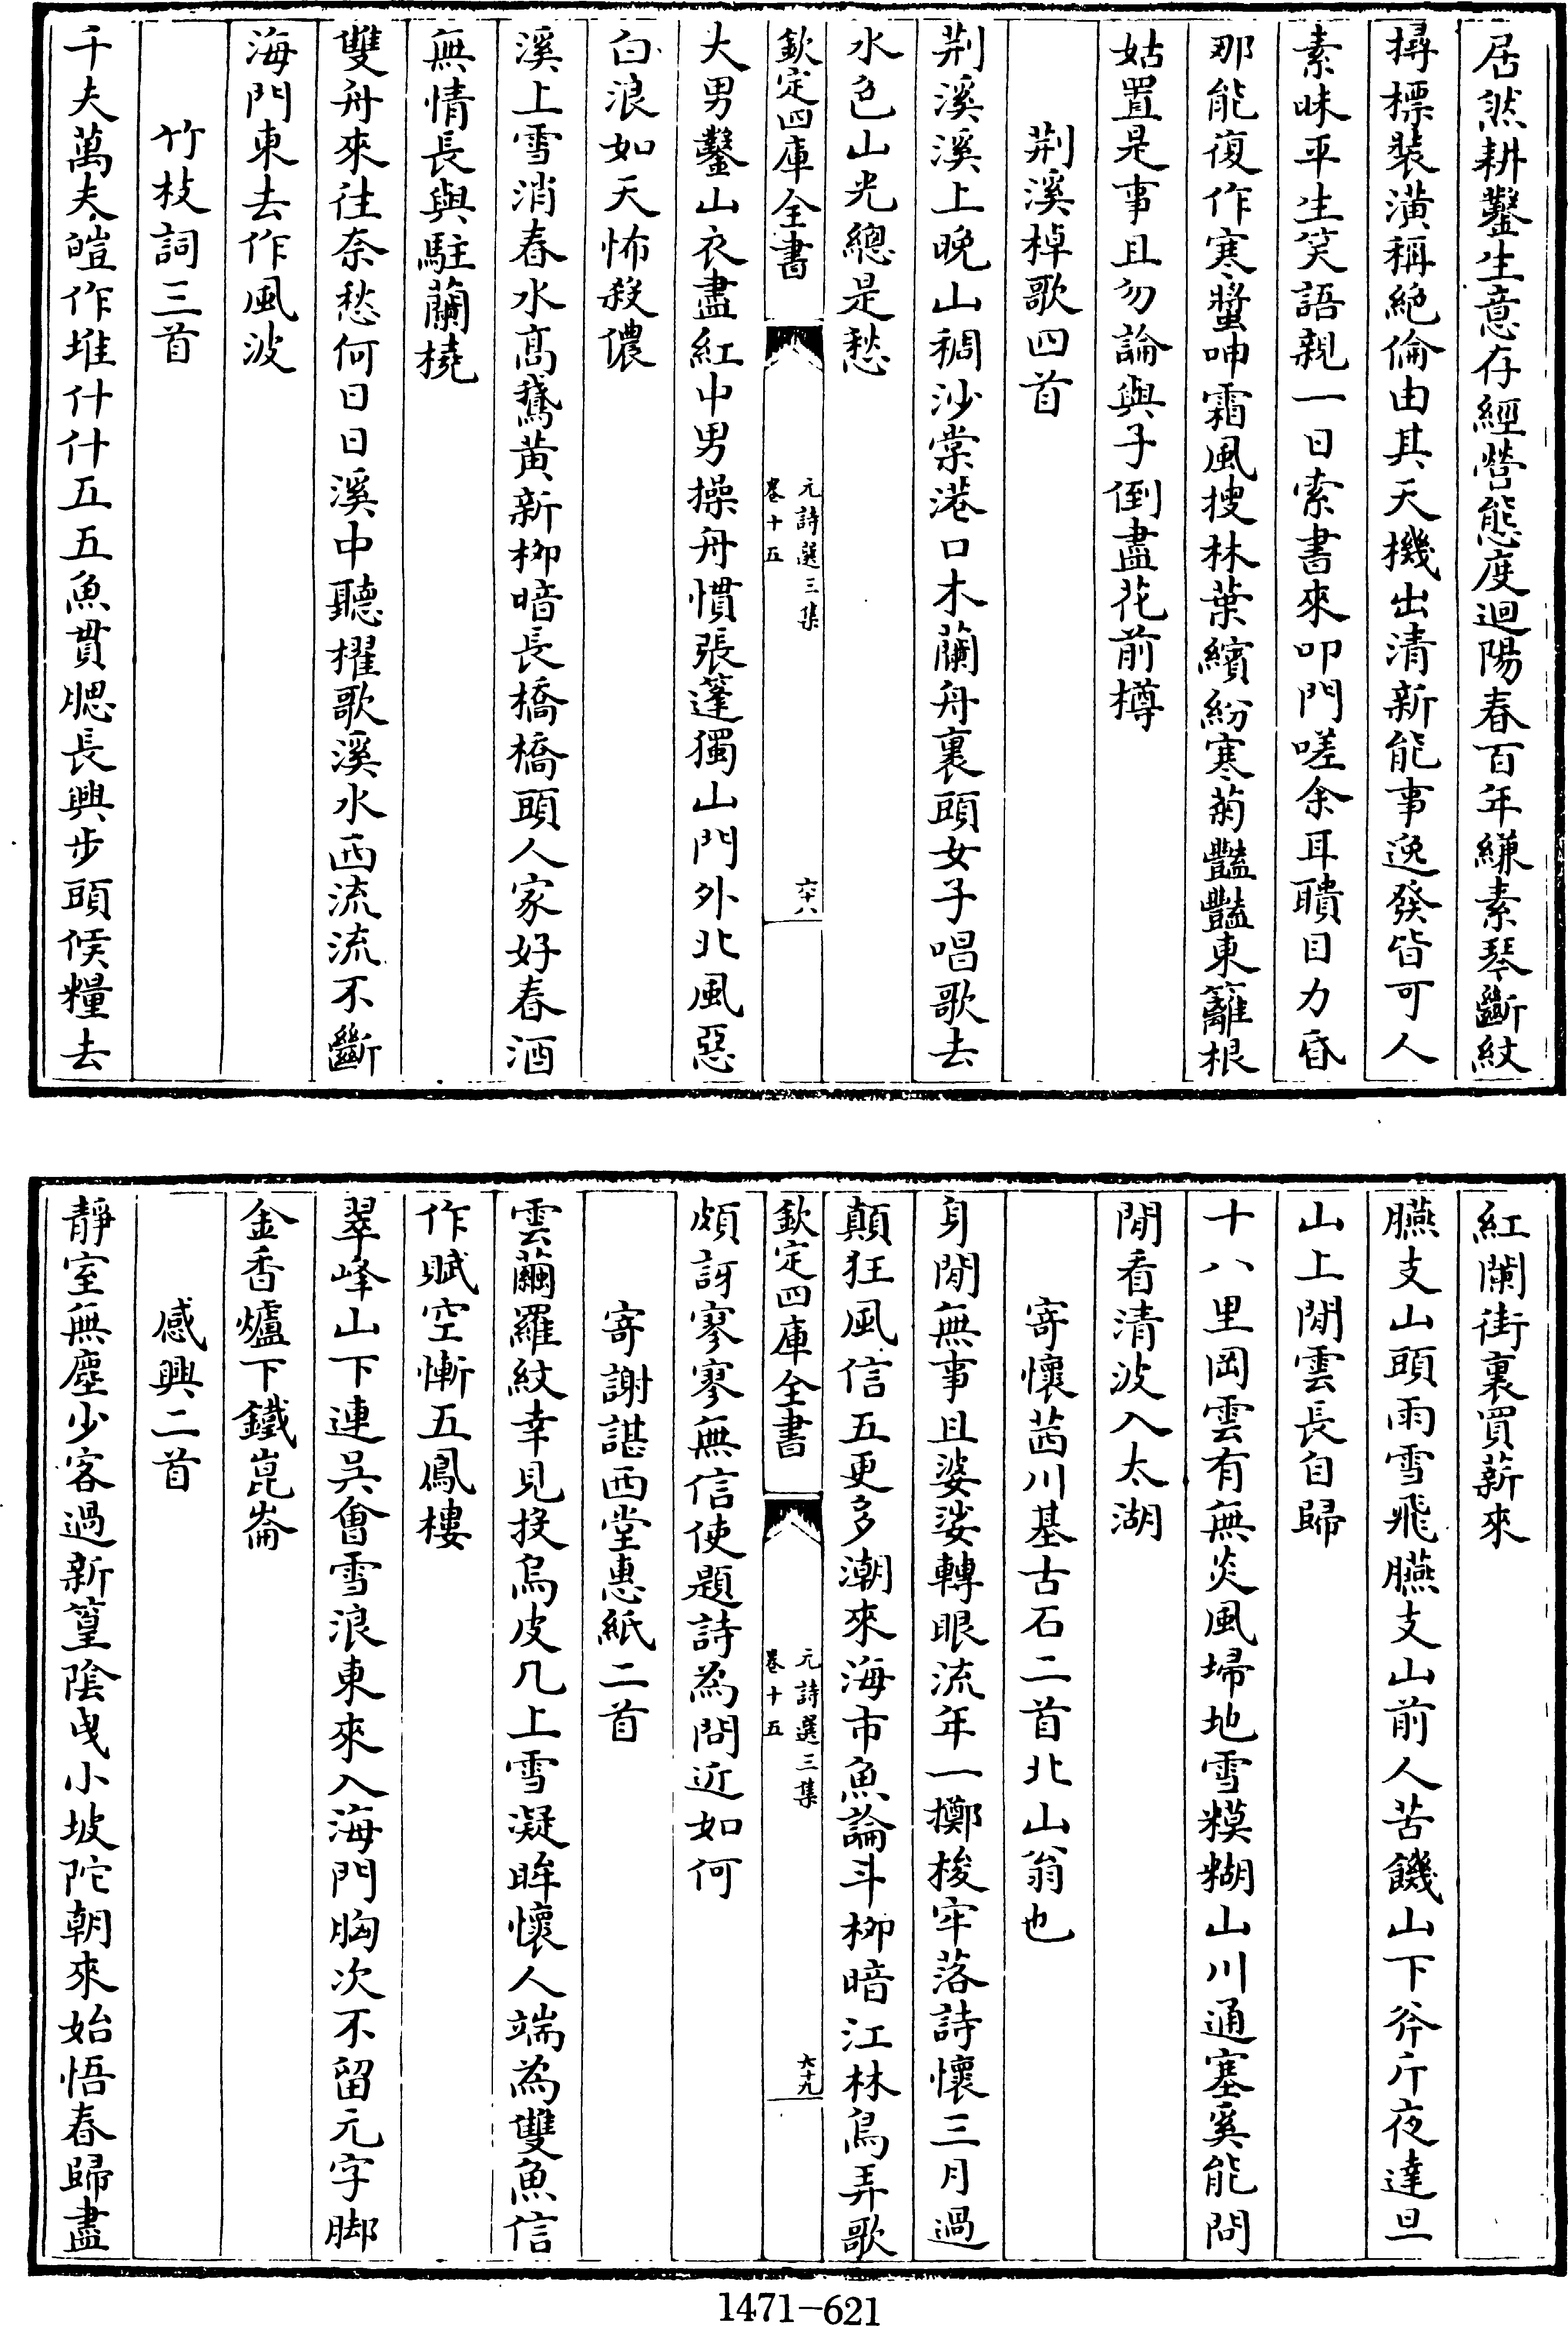 居然耕鑿生意存經營態度迴陽春百年縑素琴斷紋
撏標裝潢稱絶倫由其天機出清新能事逸發皆可人
素昧平生笑語親一日索書來叩門嗟余耳聵目力昏
那能復作寒螿呻霜風搜林葉繽紛寒菊豔豔東籬根
姑置是事且勿論與子倒盡花前樽
荆溪棹歌四首
荆溪溪上晚山稠沙棠港口木蘭舟裏頭女子唱歌去
水色山光總是愁
欽定四庫全書
元詩選三集
卷十五
六十八
大男鑿山衣盡紅中男操舟慣張蓬獨山門外北風惡
白浪如天怖殺儂
溪上雪消春水高鵞黄新栁暗長橋橋頭人家好春酒
無情長與駐蘭橈
雙舟來往奈愁何日日溪中聽櫂歌溪水西流流不斷
海門東去作風波
竹枝詞三首
千夫萬夫皚作堆什什五五魚貫腮長興步頭候糧去
紅闌街裏買薪來
臙支山頭雨雪飛臙支山前人苦饑山下斧斤夜達旦
山上閒雲長自歸
十八里岡雲有無炎風埽地雪糢糊山川通塞奚能問
閒看清波入太湖
寄懷茜川基古石二首北山翁也
身閒無事且婆娑轉眼流年一擲梭牢落詩懷三月過
顛狂風信五更多潮來海市魚論斗栁暗江林鳥弄歌
欽定四庫全書
元詩選三集
卷十五
六十九
頗訝寥寥無信使題詩為問近如何
寄謝諶西堂惠紙二首
雲繭羅紋幸見投烏皮几上雪凝眸懷人端為雙魚信
作賦空慚五鳳樓
翠峰山下連吳會雪浪東來入海門胸次不留元字脚
金香爐下鐵崑崙
感興二首
靜室無塵少客過新篁陰曵小坡陀朝來始悟春歸盡
1471-621